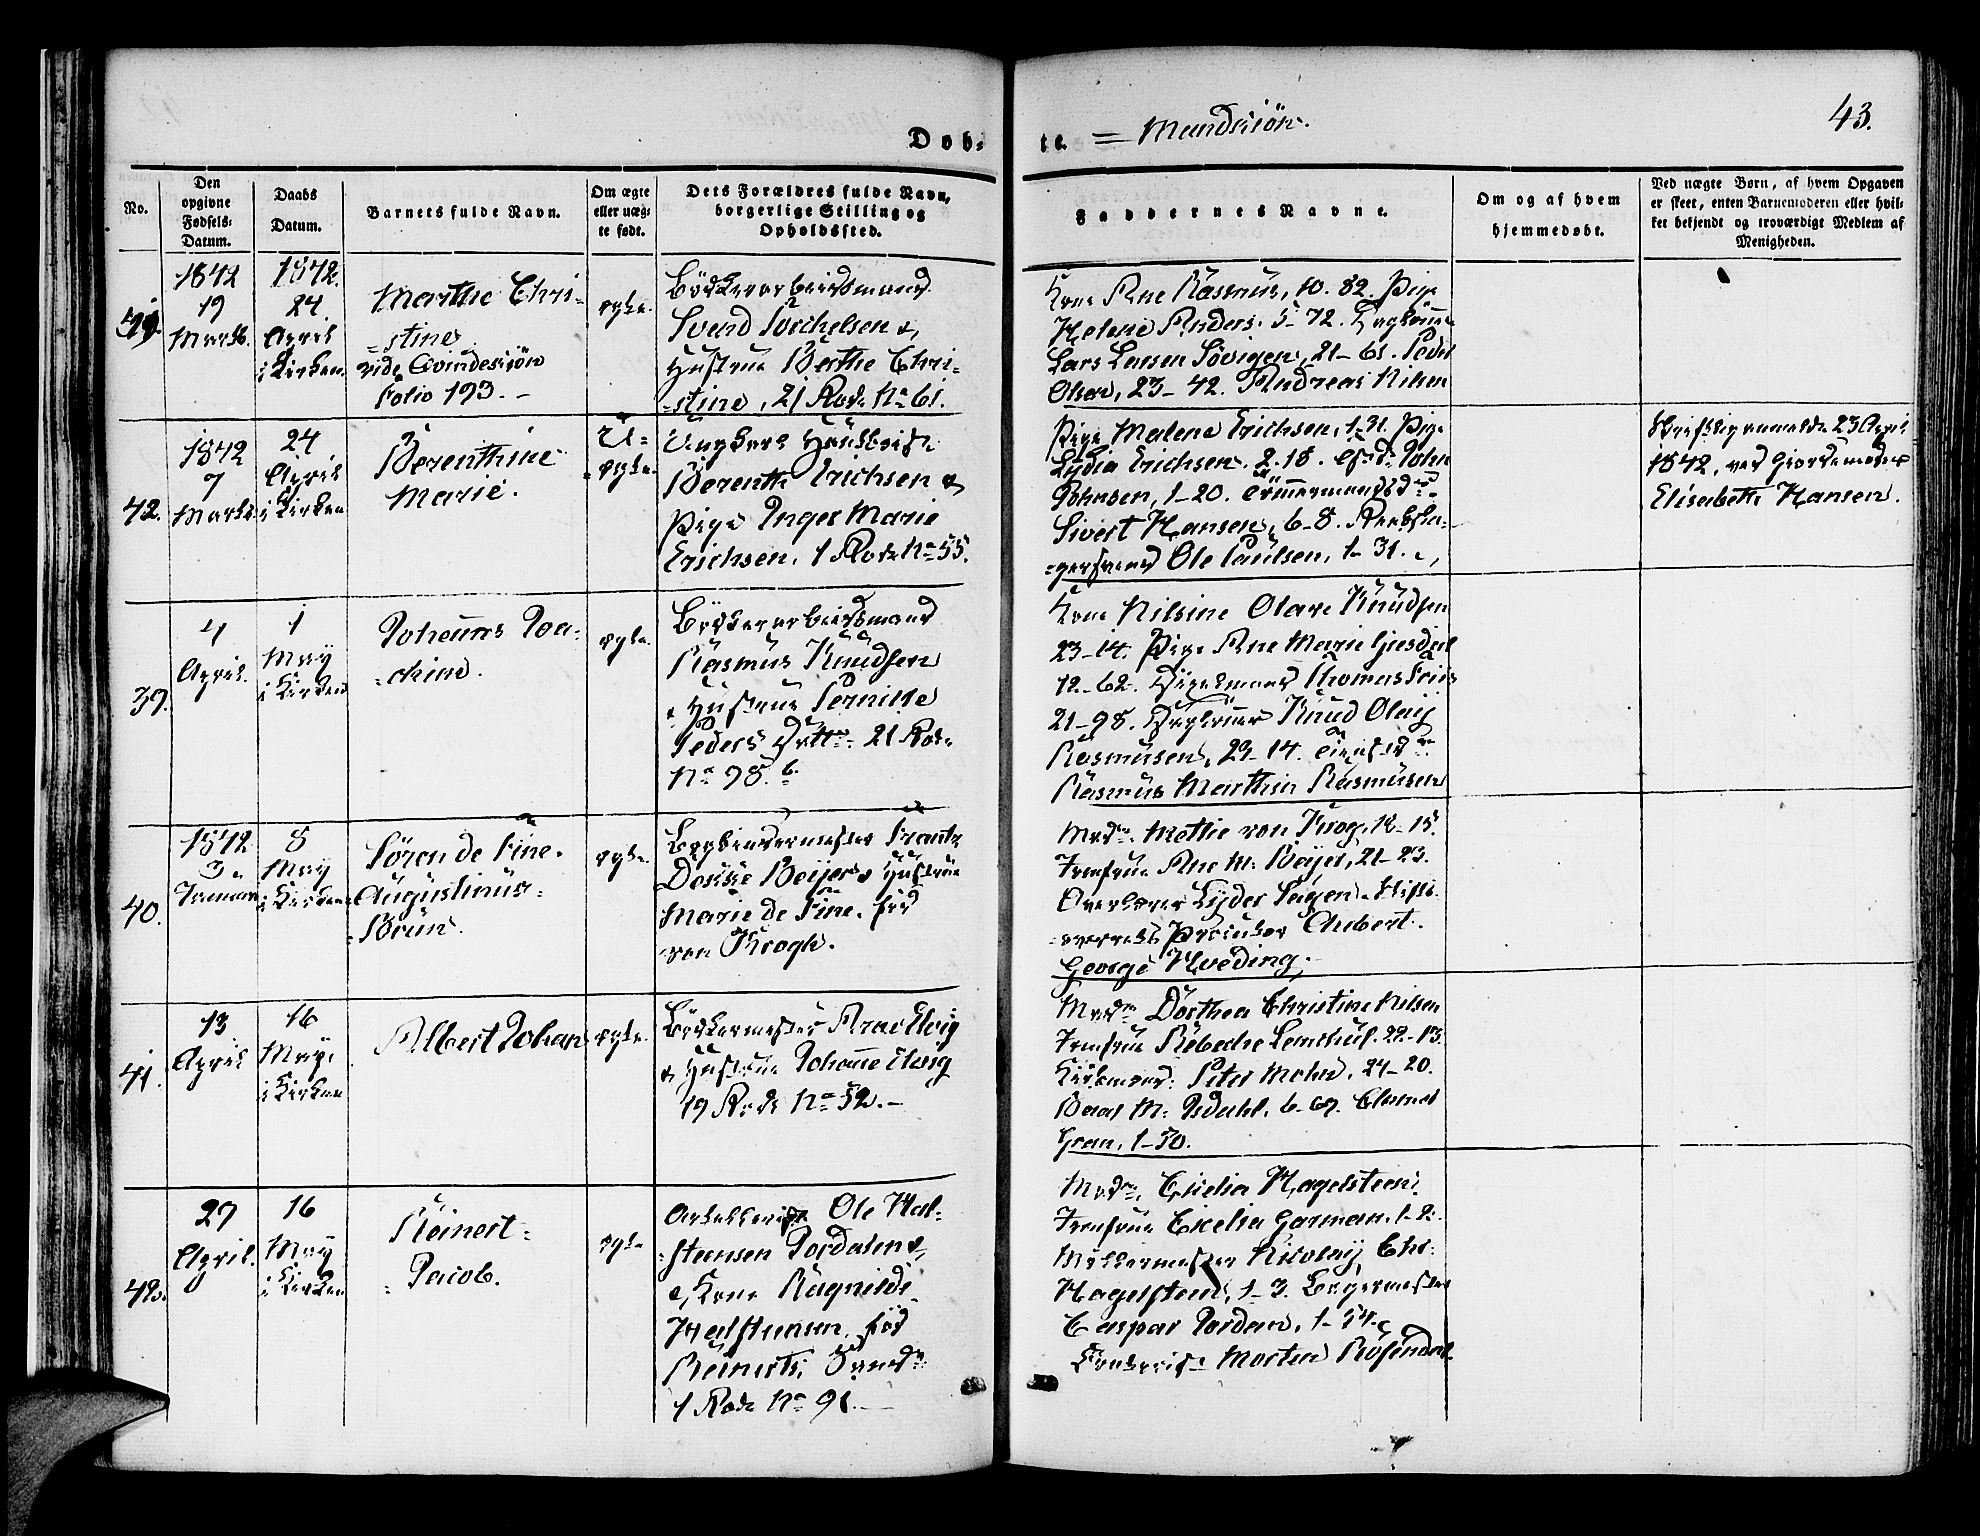 Døb-
te. = Mandkiøn.
43.
No.
Den
opgivne
Fødsels-
Datum.
Daabs
Datum.
Barnets fulde Navn.
Om ægte
eller uæg-
te født.
Dets Forældres fulde Navn,
borgerlige Stilling og
Opholdssted.
Faddernes Navne.
Om og af hvem
hjemmedøbt.
Ved uægte Børn, af hvem Opgaven
er skeet, enten Barnemoderen eller hvil-
ket bekjendt og troværdigt Medlem af
Menigheden.
1842
19
Marts.
1842.
24
April
i Kirken.
Marthe Chri-
-stine
vide Qvindekiøn
folio 193.-
ægte.
Bødkerarbeidsmand
Svend Torchelsen &
Hustrue Berthe Chri-
-stine, 21 Rode No 61.
Kone Ane Rasmus, 10. 82. Pige
Helene Anders. 5-72.
Lars Larsen Søvigen, 21-61. Peder
Olsen, 23-42. Andreas Nilsen
42.
1842
7
Marts.
24
April
i Kirken
Berenthine
Marie.
U-
-ægte.
Ungkarl
Berenth Erichsen &
Pige Inger Marie
Erichsen, 1 Rode No 55.
Pige Malene Erichsen, 1-31. Pige
Lydia Erichsen. 2.18. John
Johnsen, 1-20. Tømmermands
Sivert Hansen, 6-8. Reebsla-
-gersvend Ole Paulsen, 1-31.
Skriftlig anmeldt 23 April
1842, ved Giordemoder
Elisabeth Hansen.
39.
4
April.
1
May
i Kirken
Johannes Joa-
-chim.
ægte.
Bødkerarbeidsmand
Rasmus Knudsen
& Hustrue Pernille
Peders Datter 21 Rode
No 98. b.
Kone Nilsine Olave Knudsen
23-14. Pige Ane Marie Giesdal
12-62. Thomas Friis
21-98. Knud Olaij
Rasmusen, 23-14.
Rasmus Marthin Rasmusen
40.
1842
3
Januar
8
May
i Kirken
Søren de Fine-
Augustinus-
-Bruun.
ægte.
Bogbindermester Frantz
Dekke Beijer & Hustrue
Marie de Fine, fød
von Krogh.
Madm. Mettie von Krog, 12-15.
Jomfrue Ane M. Beyer, 21-23.
Overlærer Lyder Sagen.
Aubert.
George Hveding.
41.
13
April
16
May
i Kirken
Albert Johan
ægte.
Bødkermester
& Hustrue Johanne
19 Rode No 52.-
Madm. Dorthea Christine Nilsen
Jomfrue Rebecke Lemchul. 22-13.
Kiøbmand: Peter Mohn. 24-20.
M. Isdahl, 6-67. Clamet
Gran, 1-50.
27
April.
16
May
i Kirken
Reinert-
-Jacob.
ægte
Ole Hal-
-steensen Jordalen
& Kone Ragnilde
Halsteensen, fød
Reinerts.
1 Rode No 91.-
Madm. Cicilia Hagelsteen.
Jomfrue Cicelia Garman, 1-2.
Møllermester Nicolaij Chr:
Hagelsteen, 1-3. Bagermester
Caspar Jordan, 1-54.
Morten Rosendal